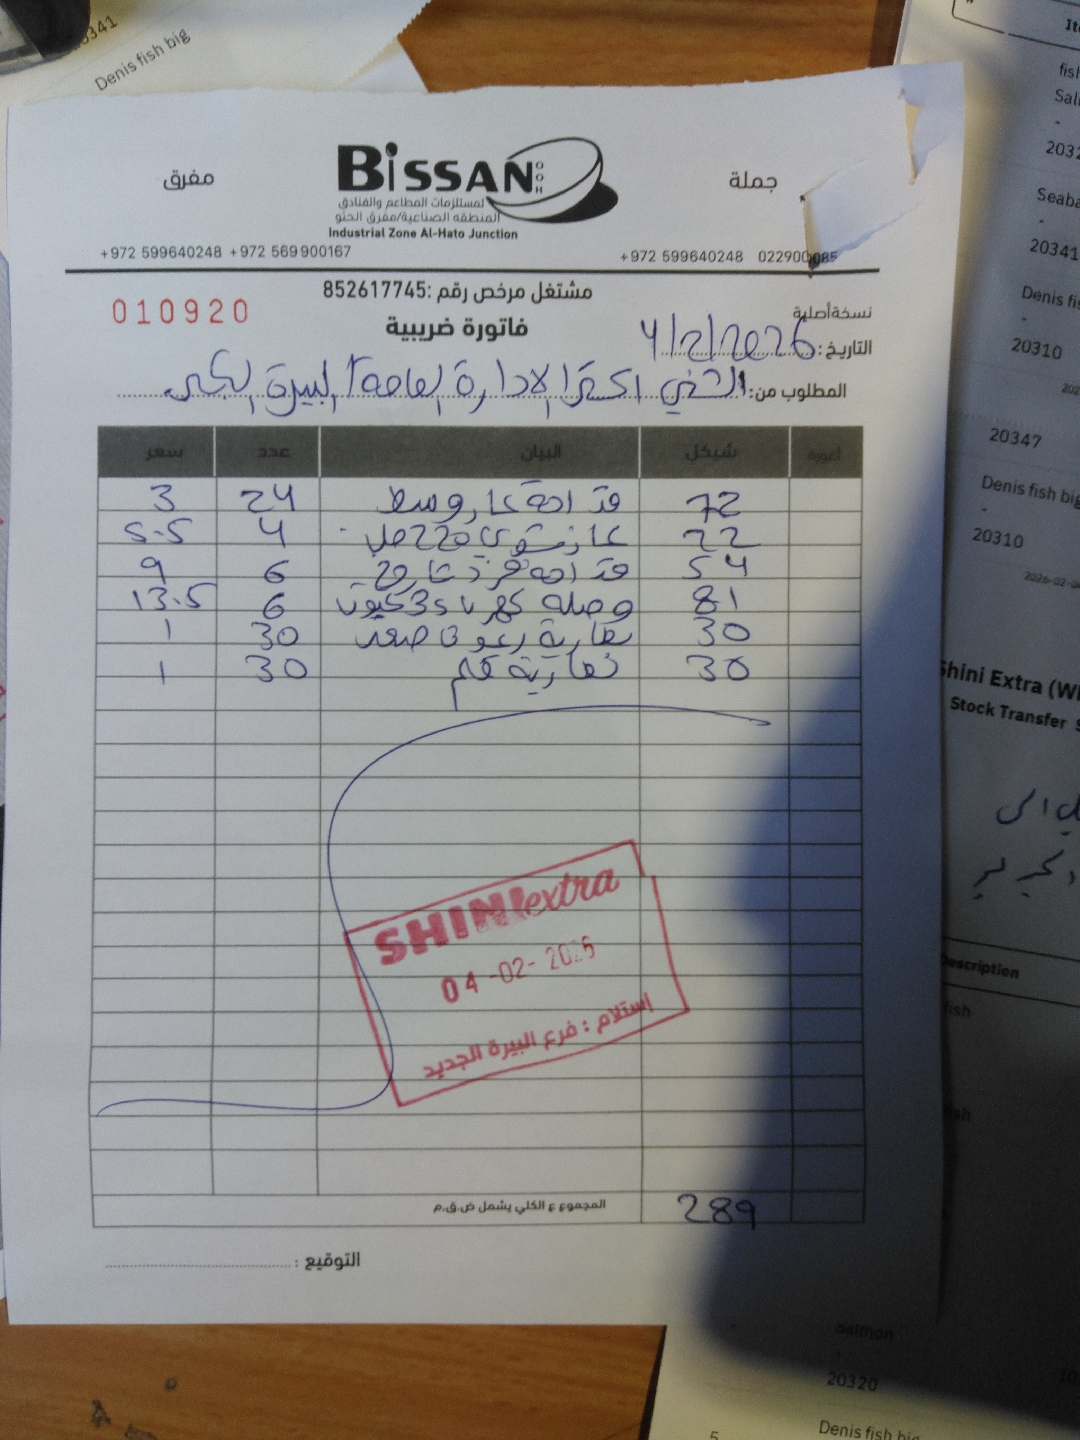 20341
Denis fish big
مفرق
BiSSAN
OOH
جملة
لمستلزمات المطاعم والفنادق
المنطقه الصناعية/مفرق الحتو
Industrial Zone Al-Hato Junction
+972 599640248 +972 569900167
+972 599640248 022900085
مشتغل مرخص رقم :852617745
010920
فاتورة ضريبية
نسخة أصلية
التاريخ: 4/2/2026
المطلوب من: الشني اكسترا الادارة العامة البيرة
أغورة شيكل البيان عدد سعر
72 قداحة وسط 24 3
22 4 5.5
54 قداحة 6 9
81 وصلة كهرباء 3 6 13.5
30 بطارية 30 1
30 بطارية قلم 30 1
SHINI extra
04-02-2026
إستلام : فرع البيرة الجديد
المجموع ع الكلي يشمل ض.ق.م 289
التوقيع :
fish
Seaba
20341
Denis fis
20310
20347
Denis fish big
20310
Shini Extra
Stock Transfer
Description
fish
Salmon
20320
Denis fish big
5